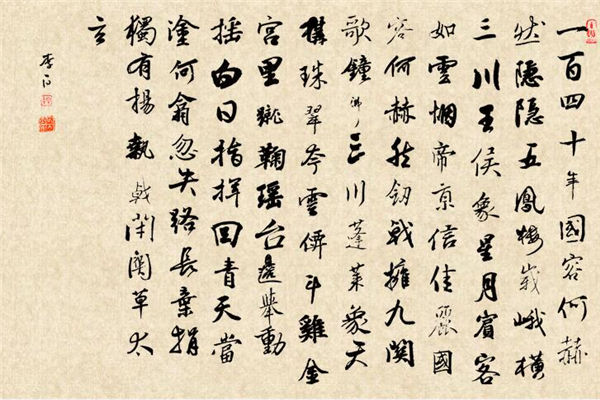 一百四十年國容何赫
然隱隱五鳳樓峨橫
三川王侯象星月賓客
如雲烟帝京信佳麗國
容何赫然劍戟擁九關
歌鐘沸三川蓬萊象天
構珠翠夸雲斗雞金
宮里蹴鞠瑤台邊舉動
搖白日指揮回青天當
塗何翕忽失路長棄捐
獨有揚執戟閉關草太
玄
李